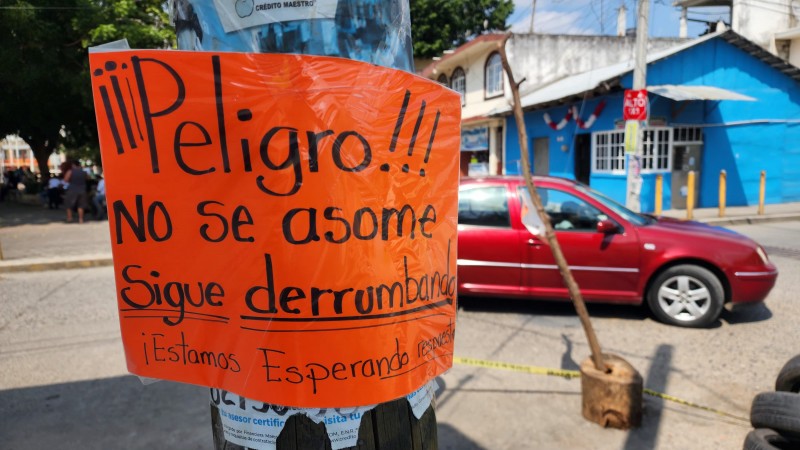 CRÉDITO MAESTRO
¡¡¡Peligro!!!
No se asome
Sigue derrumbando
¡Estamos Esperando respuesta
ALTO
asesor certific
visita tu